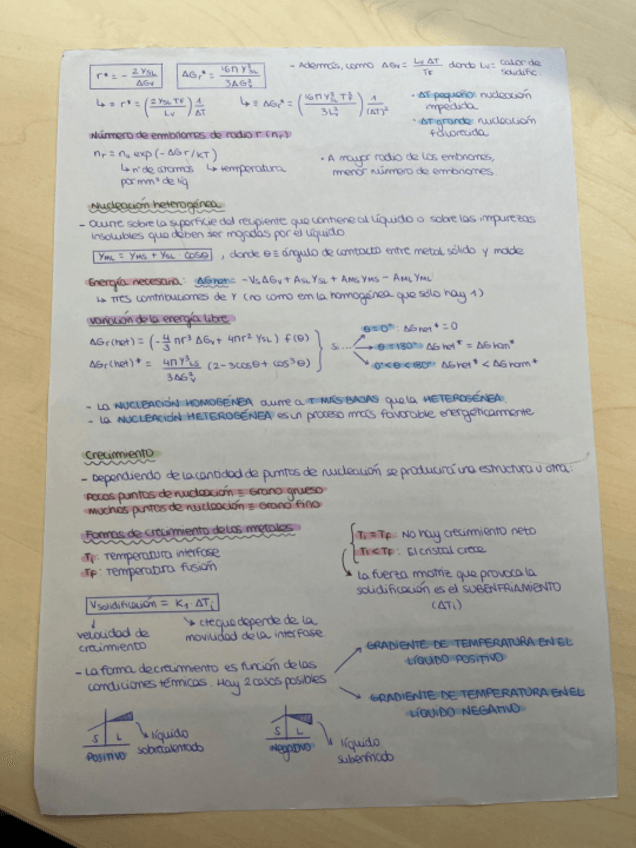 r* = - 2γSL / ΔGv    ΔGr* = 16πγ³SL / 3ΔG²v    - Además, como ΔGv = Lv ΔT / TF donde Lv = calor de solidific.
↳ r* = (2γSL TF / Lv) 1/ΔT    ↳ ΔGr* = (16πγ³SL T²F / 3L²v) 1/(ΔT)²
· ΔT pequeño nucleación impedida
· ΔT grande nucleación favorecida
Número de embriones de radio r (nr)
nr = no exp(-ΔGr/KT)
↳ nº de átomos por mm³ de líq    ↳ temperatura
· A mayor radio de los embriones, menor número de embriones
Nucleación heterogénea
- Ocurre sobre la superficie del recipiente que contiene al líquido o sobre las impurezas
insolubles que deben ser mojadas por el líquido
γML = γMS + γSL cosθ , donde θ ≡ ángulo de contacto entre metal sólido y molde
Energía necesaria: ΔGhet = -VsΔGv + ASLγSL + AMSγMS - AMLγML
↳ Tres contribuciones de γ (no como en la homogénea que sólo hay 1)
Variación de la energía libre
ΔGr(het) = (-4/3 πr³ ΔGv + 4πr² γSL) f(θ)
ΔGr(het)* = 4πγ³LS / 3ΔG²v (2-3cosθ + cos³θ)
Si...
θ=0º: ΔGhet* = 0
θ=180º ΔGhet* = ΔGhom*
0º<θ<180º ΔGhet* < ΔGhom*
- La NUCLEACIÓN HOMOGÉNEA ocurre a T MÁS BAJAS que la HETEROGÉNEA
- La NUCLEACIÓN HETEROGÉNEA es un proceso más favorable energéticamente
Crecimiento
- Dependiendo de la cantidad de puntos de nucleación se producirá una estructura u otra:
Pocos puntos de nucleación = Grano grueso
Muchos puntos de nucleación = Grano fino
Formas de crecimiento de los metales
Ti: Temperatura interfase
TF: Temperatura fusión
Ti = TF: No hay crecimiento neto
Ti < TF: El cristal crece
↳ La fuerza motriz que provoca la
solidificación es el SUBENFRIAMIENTO
(ΔTi)
Vsolidificación = K1 · ΔTi
velocidad de crecimiento
cte que depende de la
movilidad de la interfase
- La forma de crecimiento es función de las
condiciones térmicas. Hay 2 casos posibles
GRADIENTE DE TEMPERATURA EN EL
LÍQUIDO POSITIVO
GRADIENTE DE TEMPERATURA EN EL
LÍQUIDO NEGATIVO
S L
POSITIVO
líquido
sobrecalentado
S L
NEGATIVO
líquido
subenfriado